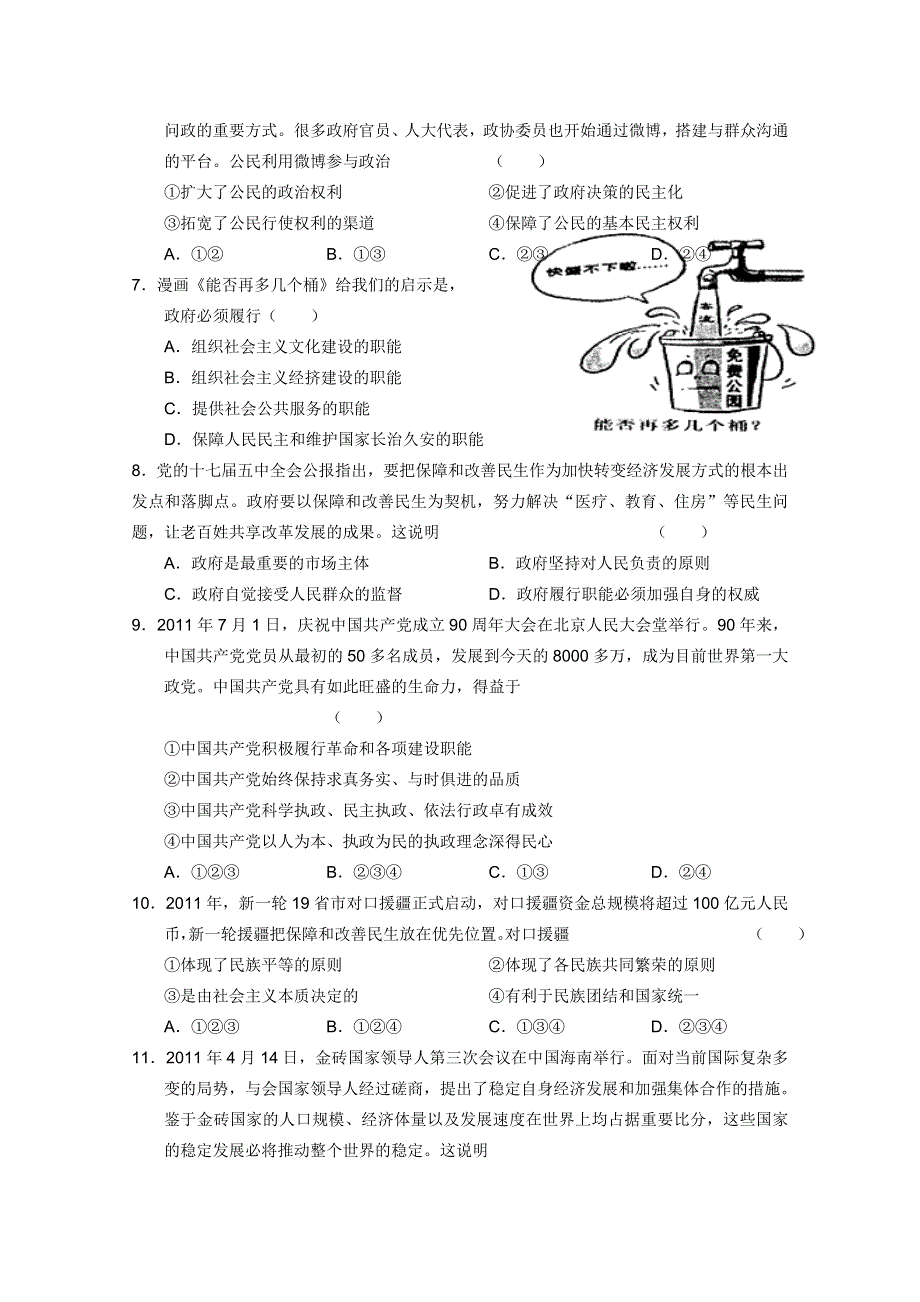 问政的重要方式。很多政府官员、人大代表，政协委员也开始通过微博，搭建与群众沟通
的平台。公民利用微博参与政治 （ ）
①扩大了公民的政治权利 ②促进了政府决策的民主化
③拓宽了公民行使权利的渠道 ④保障了公民的基本民主权利
A．①② B．①③ C．②③ D．②④
7．漫画《能否再多几个桶》给我们的启示是，
政府必须履行（ ）
A．组织社会主义文化建设的职能
B．组织社会主义经挤建设的职能
C．提供社会公共服务的职能
D．保障人民民主和维护国家长治久安的职能
快盛不下啦……
客流
免费公园
能否再多几个桶？
8．党的十七届五中全会公报指出，要把保障和改善民生作为加快转变经济发展方式的根本出
发点和落脚点。政府要以保障和改善民生为契机，努力解决“医疗、教育、住房”等民生问
题，让老百姓共享改革发展的成果。这说明 （ ）
A．政府是最重要的市场主体 B．政府坚持对人民负责的原则
C．政府自觉接受人民群众的监督 D．政府履行职能必须加强自身的权威
9．2011 年 7 月 1 日，庆祝中国共产党成立 90 周年大会在北京人民大会堂举行。90 年来，
中国共产党党员从最初的 50 多名成员，发展到今天的 8000 多万，成为目前世界第一大
政党。中国共产党具有如此旺盛的生命力，得益于
（ ）
①中国共产党积极履行革命和各项建设职能
②中国共产党始终保持求真务实、与时俱进的品质
③中国共产党科学执政、民主执政、依法行政卓有成效
④中国共产党以人为本、执政为民的执政理念深得民心
A．①②③ B．②③④ C．①③ D．②④
10．2011 年，新一轮 19 省市对口援疆正式启动，对口援疆资金总规模将超过 100 亿元人民
币，新一轮援疆把保障和改善民生放在优先位置。对口援疆 （ ）
①体现了民族平等的原则 ②体现了各民族共同繁荣的原则
③是由社会主义本质决定的 ④有利于民族团结和国家统一
A．①②③ B．①②④ C．①③④ D．②③④
11．2011 年 4 月 14 日，金砖国家领导人第三次会议在中国海南举行。面对当前国际复杂多
变的局势，与会国家领导人经过磋商，提出了稳定自身经济发展和加强集体合作的措施。
鉴于金砖国家的人口规模、经济体量以及发展速度在世界上均占据重要比分，这些国家
的稳定发展必将推动整个世界的稳定。这说明